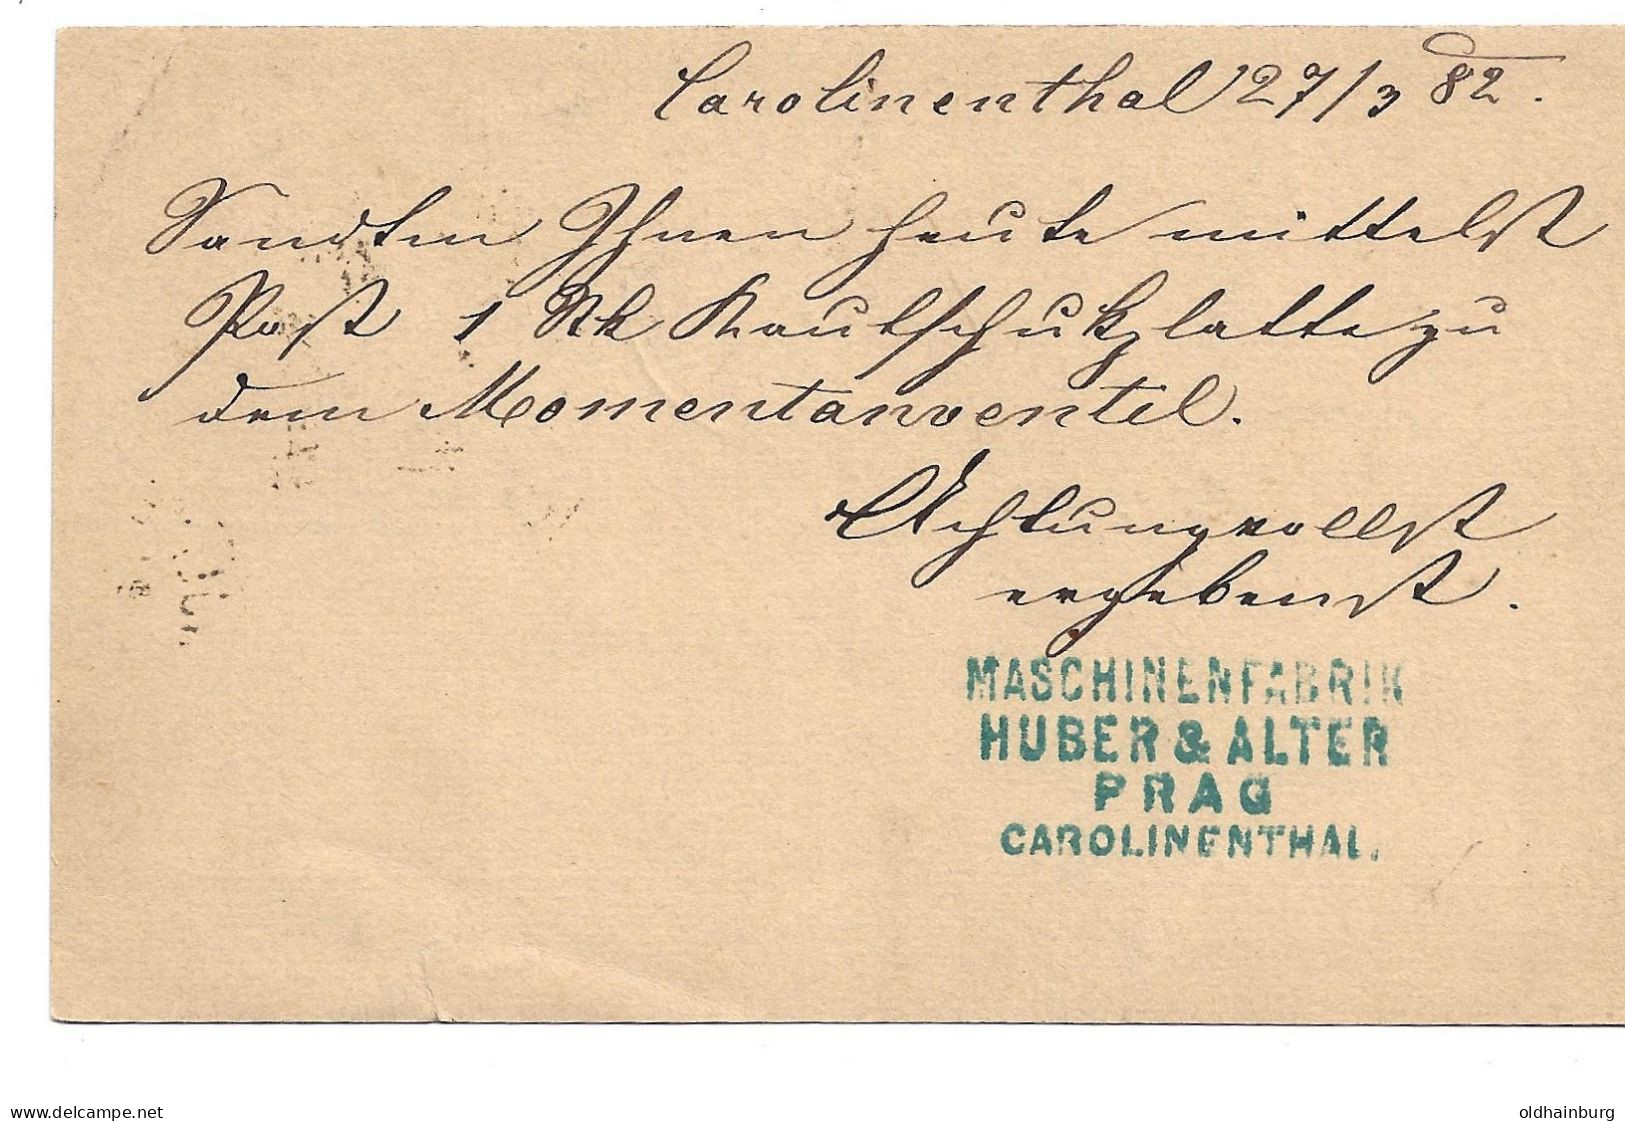 Carolinenthal 27/3 82.
Sandten Ihnen heute mittelst
Post 1 Stk Kautschukplatte zu
dem Momentanventil.
Achtungsvollst
ergebenst.
MASCHINENFABRIK
HUBER & ALTER
PRAG
CAROLINENTHAL.
www.delcampe.net
oldhainburg